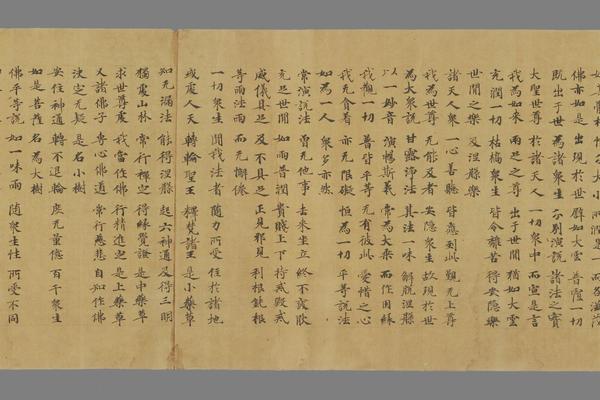 佛亦如是 出現於世 譬如大雲 普覆一切
既出于世 為諸衆生 分別演說 諸法之實
大聖世尊 於諸天人 一切衆中 而宣是言
我為如來 兩足之尊 出于世間 猶如大雲
充潤一切 枯槁衆生 皆令離苦 得安隱樂
世間之樂 及涅槃樂
諸天人衆 一心善聽 皆應到此 覲无上尊
我為世尊 无能及者 安隱衆生 故現於世
為大衆說 甘露淨法 其法一味 解脫涅槃
以一妙音 演暢斯義 常為大乘 而作因緣
我觀一切 普皆平等 无有彼此 愛憎之心
我无貪著 亦无限礙 恒為一切 平等說法
如為一人 衆多亦然
常演說法 曾无他事 去來坐立 終不疲厭
充足世間 如雨普潤 貴賤上下 持戒毀戒
威儀具足 及不具足 正見邪見 利根鈍根
等雨法雨 而无懈倦
一切衆生 聞我法者 隨力所受 住於諸地
或處人天 轉輪聖王 釋梵諸王 是小藥草
知无漏法 能得涅槃 起六神通 及得三明
獨處山林 常行禪定 得緣覺證 是中藥草
求世尊處 我當作佛 行精進定 是上藥草
又諸佛子 專心佛道 常行慈悲 自知作佛
決定无疑 是名小樹
安住神通 轉不退輪 度无量億 百千衆生
如是菩薩 名為大樹
佛平等說 如一味雨 隨衆生性 所受不同